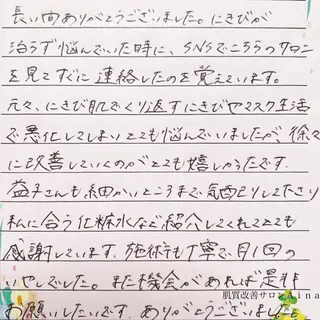 長い間ありがとうございました。にきびが
治らず悩んでいた時に、SNSでこちらのサロン
を見てすぐに連絡したのを覚えています。
元々、にきび肌でくり返すにきびやマスク生活
で悪化してしまいとても悩んでいましたが、徐々
に改善していくのがとても嬉しかったです。
益子さんも細かいところまで気配りしてくださり
私に合う化粧水など紹介してくれてとても
感謝しています。施術も丁寧で月1回の
いやしでした。また機会があれば是非
お願いしたいです。ありがとうございました。
肌質改善サロンAina